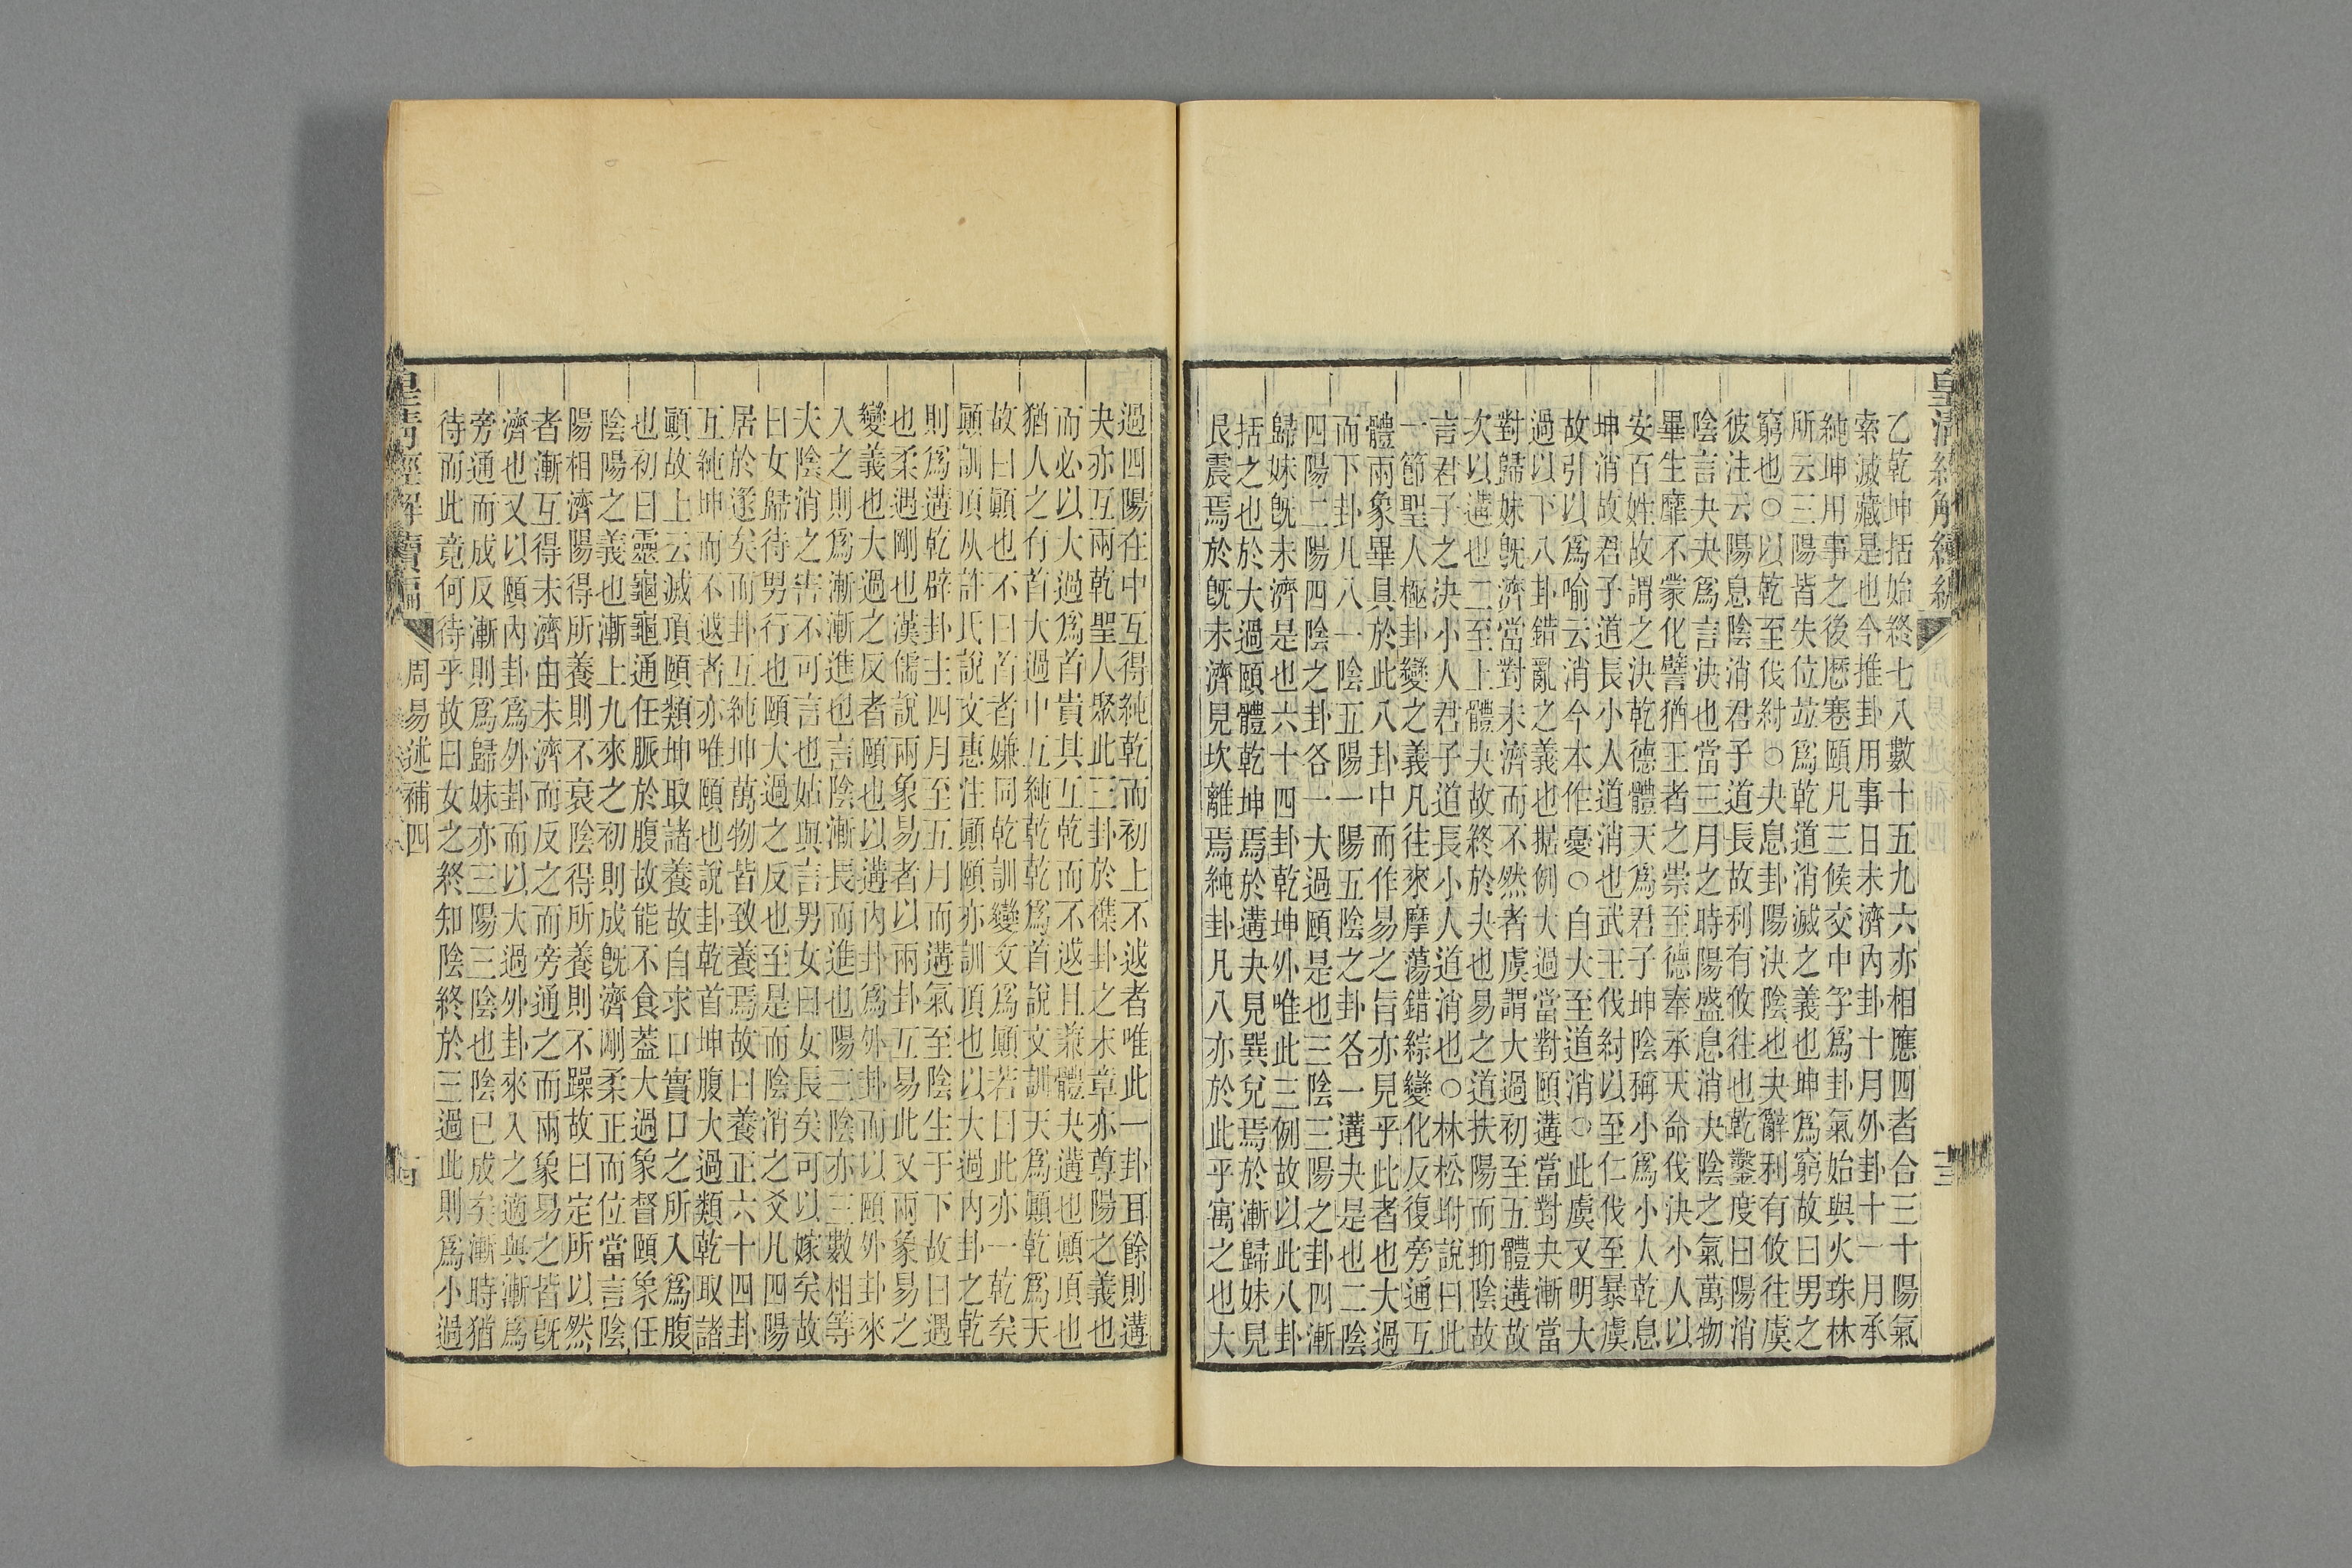 皇清經解續編
十三
乙乾坤括始終七八數十五九六亦相應四者合三十陽氣
索滅藏是也今推卦用事日未濟內卦十月外卦十一月承
純坤用事之後歷蹇頤凡三候交中孚爲卦氣始與火珠林
所云三陽皆失位竝爲乾道消滅之義也坤爲窮故曰男之
窮也○以乾至伐紂○夬息卦陽決陰也夬辭利有攸往虞
彼注云陽息陰消君子道長故利有攸往也乾鑿度曰陽消
陰言夬夬爲言決也當三月之時陽盛息消夬陰之氣萬物
畢生靡不蒙化譬猶王者之崇至德奉承天命伐決小人以
安百姓故謂之決乾德體天爲君子坤陰稱小爲小人乾息
坤消故君子道長小人道消也武王伐紂以至仁伐至暴虞
故引以爲喻云消今本作憂○自大至道消○此虞又明大
過以下八卦錯亂之義也据例大過當對頤遘當對夬漸當
對歸妹旣濟當對未濟而不然者虞謂大過初至五體遘故
次以遘也二至上體夬故終於夬也易之道扶陽而抑陰故
言君子之決小人君子道長小人道消也○林松坿說曰此
一節聖人極卦變之義凡往來摩蕩錯綜變化反復旁通互
體兩象畢具於此八卦中而作易之旨亦見乎此者也大過
而下卦凡八一陰五陽一陽五陰之卦各一遘夬是也二陰
四陽二陽四陰之卦各一大過頤是也三陰三陽之卦四漸
歸妹旣未濟是也六十四卦乾坤外唯此三例故以此八卦
括之也於大過頤體乾坤焉於遘夬見巽兌焉於漸歸妹見
艮震焉於旣未濟見坎離焉純卦凡八亦於此乎寓之也大
過四陽在中互得純乾而初上不越者唯此一卦耳餘則遘
夬亦互兩乾聖人聚此三卦於襍卦之末章亦尊陽之義也
而必以大過爲首貴其互乾而不越且兼體夬遘也顚頂也
猶人之有首大過中互純乾乾爲首說文訓天爲顚乾爲天
故曰顚也不曰首者嫌同乾訓變文爲顚若曰此亦一乾矣
顚訓頂从許氏說文惠注顚頤亦訓頂也以大過內卦之乾
則爲遘乾辟卦主四月至五月而遘氣至陰生于下故曰遇
也柔遇剛也漢儒說兩象易者以兩卦互易此又兩象易之
變義也大過之反者頤也以遘內卦爲外卦而以頤外卦來
入之則爲漸漸進也言陰漸長而進也陽三陰亦三數相等
夫陰消之害不可言也姑與言男女曰女長矣可以嫁矣故
曰女歸待男行也頤大過之反也至是而陰消之爻凡四陽
居於遂矣而卦互純坤萬物皆致養焉故曰養正六十四卦
互純坤而不越者亦唯頤也說卦乾首坤腹大過類乾取諸
顚故上云滅頂頤類坤取諸養故自求口實口之所入爲腹
也初曰靈龜龜通任脈於腹故能不食蓋大過象督頤象任
陰陽之義也漸上九來之初則成旣濟剛柔正而位當言陰
陽相濟陽得所養則不衰陰得所養則不躁故曰定所以然
者漸互得未濟由未濟而反之而旁通之而兩象易之皆旣
濟也又以頤內卦爲外卦而以大過外卦來入之適與漸爲
旁通而成反漸則爲歸妹亦三陽三陰也陰已成矣漸時猶
待而此竟何待乎故曰女之終知陰終於三過此則爲小過
皇清經解續編
周易述補四
十四